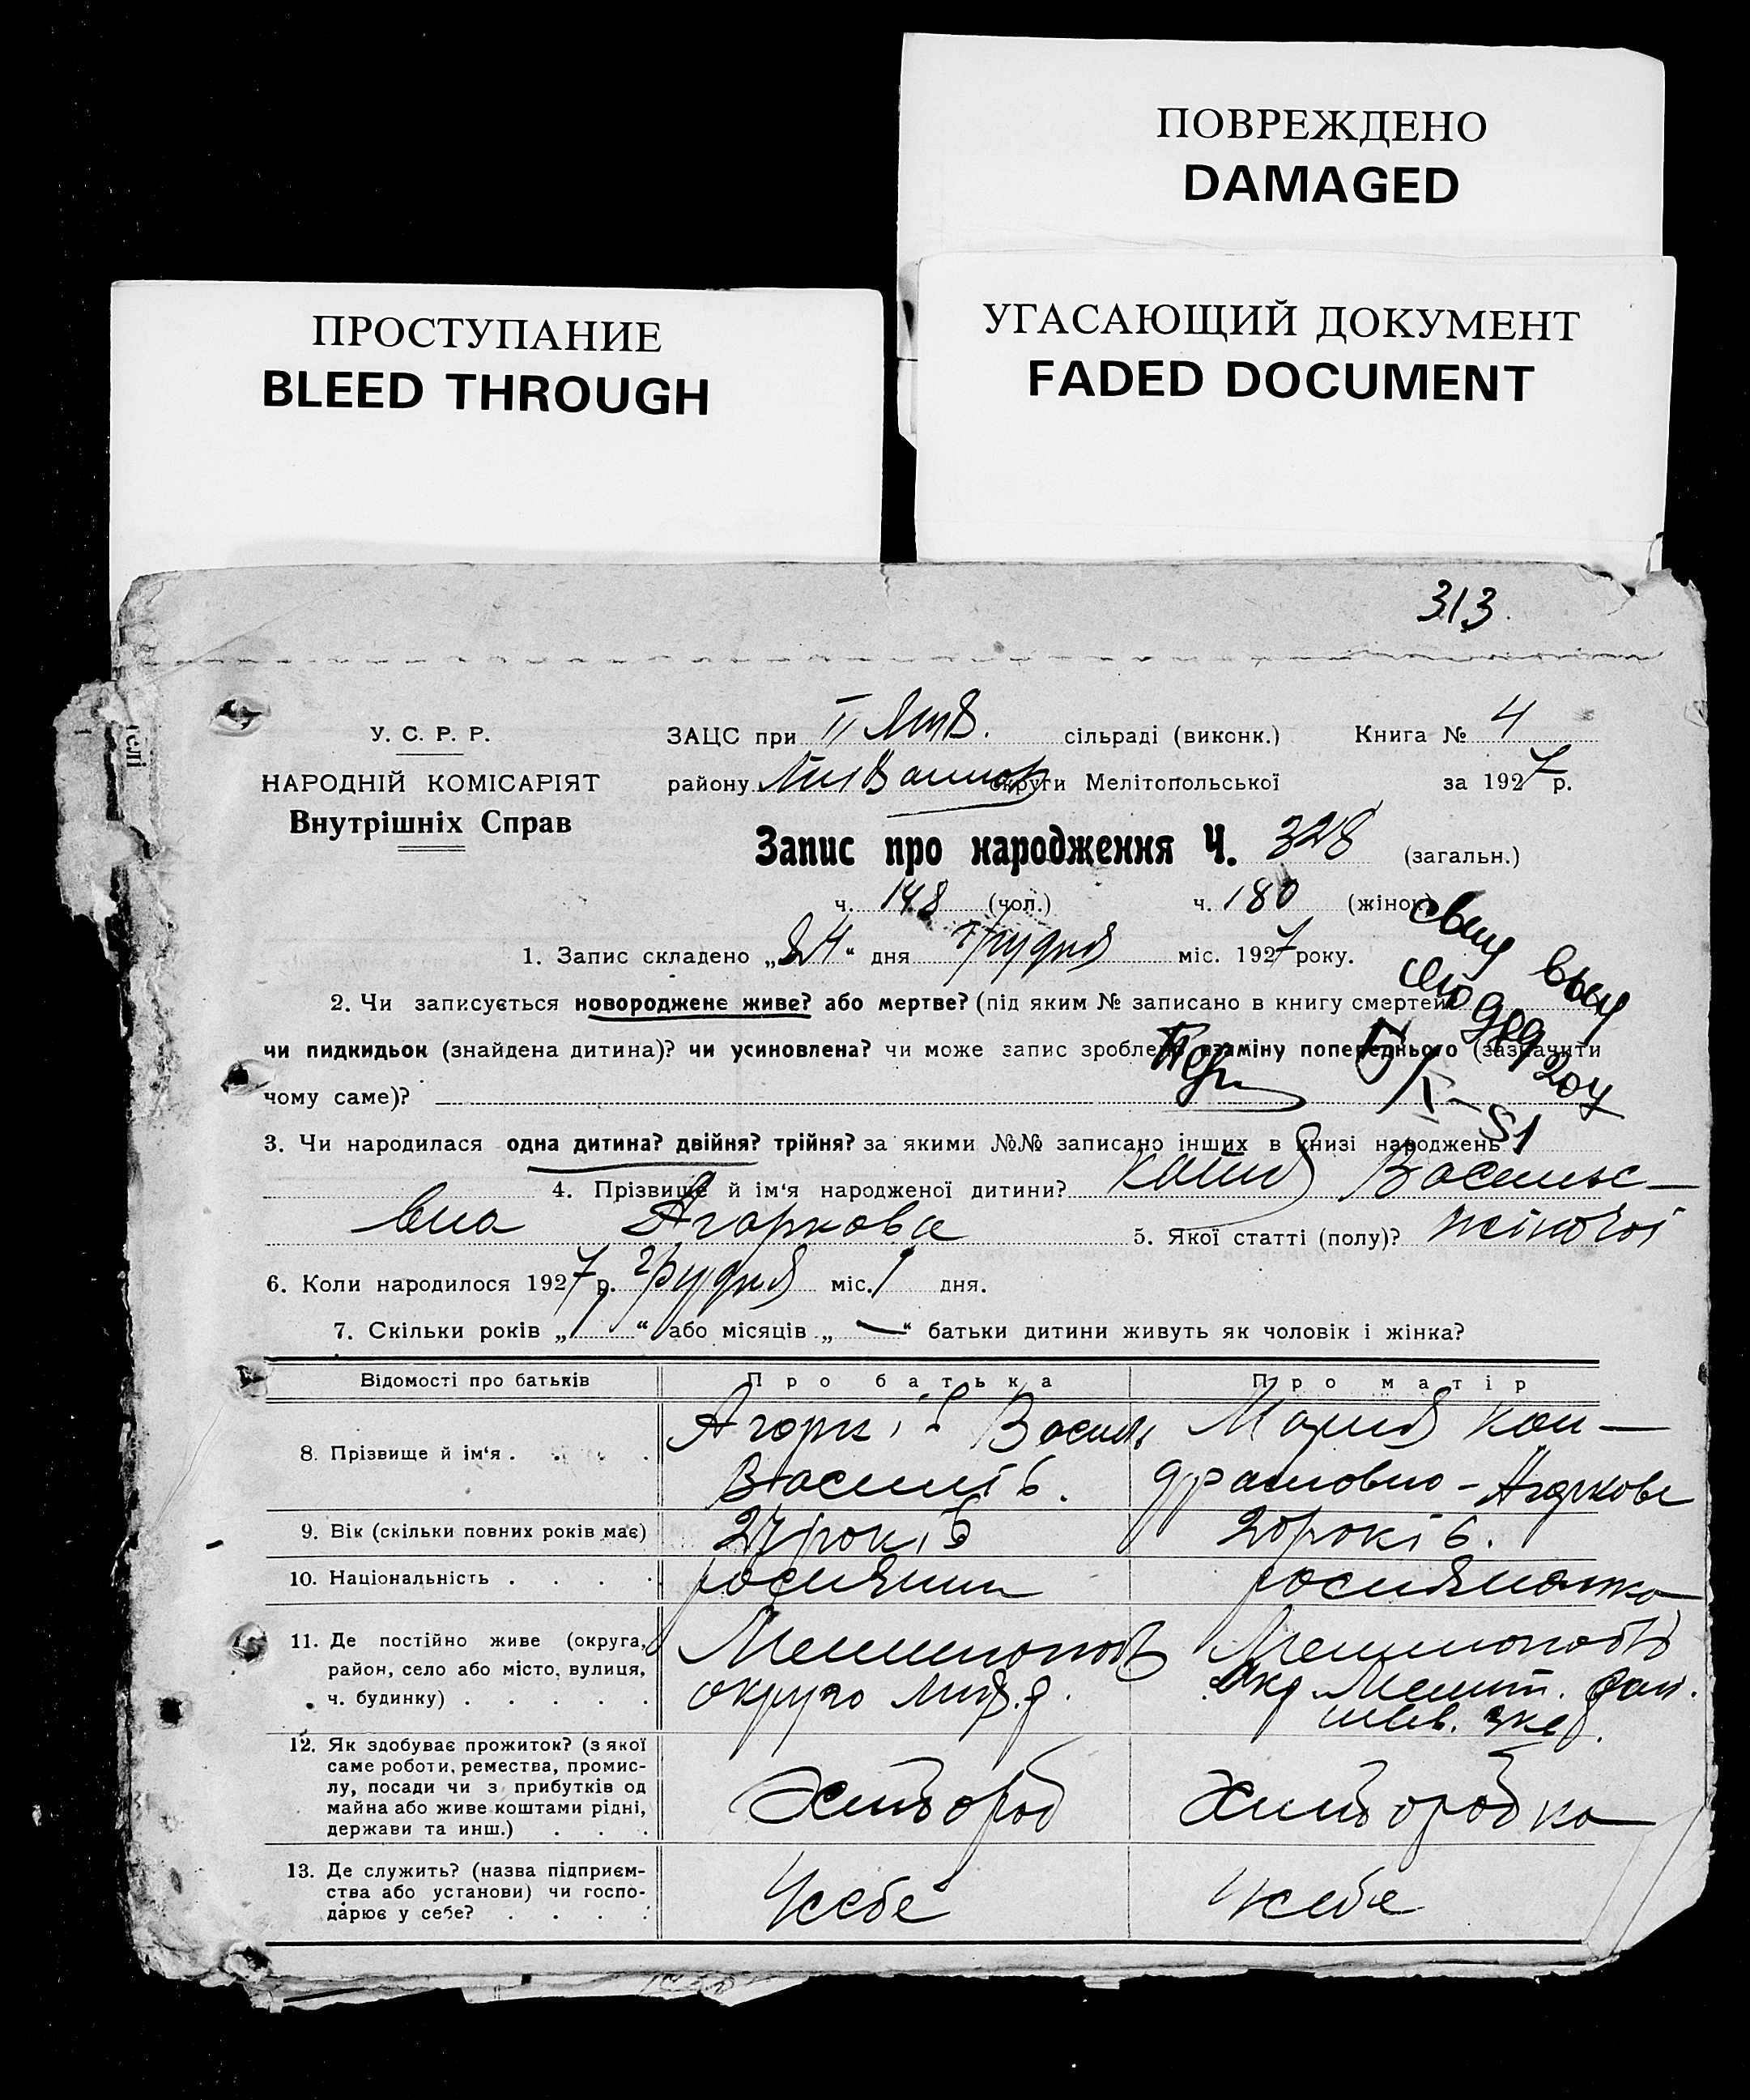 ПОВРЕЖДЕНО
DAMAGED
ПРОСТУПАНИЕ
BLEED THROUGH
УГАСАЮЩИЙ ДОКУМЕНТ
FADED DOCUMENT
313.
У. С. Р. Р.
НАРОДНІЙ КОМІСАРІЯТ
Внутрішніх Справ
ЗАЦС при II сільраді (виконк.) Книга № 4
району округи Мелітопольської за 1927 р.
Запис про народження Ч. 328 (загальн.)
ч. 148 (чол.) ч. 180 (жінок)
1. Запис складено „24“ дня грудня міс. 1927 року.
2. Чи записується новороджене живе? або мертве? (під яким № записано в книгу смертей
чи пидкидьок (знайдена дитина)? чи усиновлена? чи може запис зроблено взаміну попереднього (зазначити
чому саме)?
3. Чи народилася одна дитина? двійня? трійня? за якими №№ записано інших в книзі народжень
4. Прізвище й ім‘я народженої дитини? Васильє-
вна Агаркова 5. Якої статті (полу)? жіночої
6. Коли народилося 1927 р. грудня міс. 1 дня.
7. Скільки років „1“ або місяців „—“ батьки дитини живуть як чоловік і жінка?
Відомості про батьків Про батька Про матір
8. Прізвище й ім‘я . . . . Агарків Василь Мария Кон-
Василів. дратовна - Агаркова
9. Вік (скільки повних років має) 27 років 20 років.
10. Національність . . . . росиянин росиянка
11. Де постійно живе (округа,
район, село або місто, вулиця,
ч. будинку) . . . . .
округа
12. Як здобуває прожиток? (з якої
саме роботи, ремества, промис-
лу, посади чи з прибутків од
майна або живе коштами рідні,
держави та инш.) . . .
Хлібороб Хліборобка
13. Де служить? (назва підприєм-
ства або установи) чи госпо-
дарює у себе? . . . .
У себе У себе